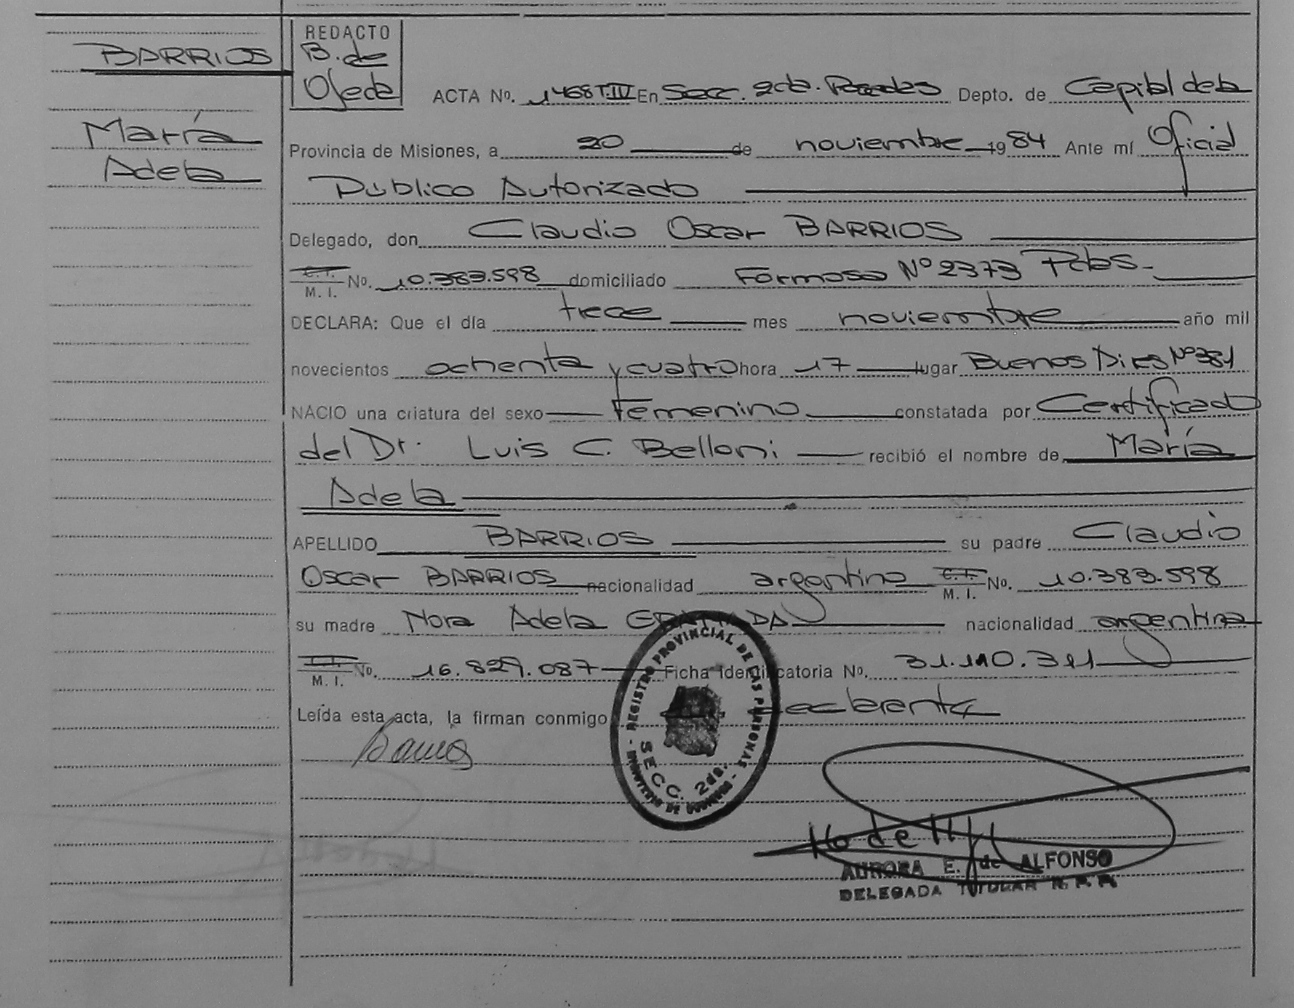 BARRIOS
María
Adela
REDACTO
B. de
Ojeda
ACTA No. 1468 T.IV En Secc. 2da. Posadas Depto. de Capital de la
Provincia de Misiones, a 20 de noviembre 1984 Ante mí Oficial
Público Autorizado
Delegado, don Claudio Oscar BARRIOS
C.I. M.I. No. 10.383.598 domiciliado Formosa Nº 2373 Pdas.
DECLARA: Que el día trece mes noviembre año mil
novecientos ochenta y cuatro hora 17 lugar Buenos Aires Nº 381
NACIO una criatura del sexo Femenino constatada por Certificado
del Dr. Luis C. Belloni recibió el nombre de María
Adela
APELLIDO BARRIOS su padre Claudio
Oscar BARRIOS nacionalidad argentino C.I. M.I. No. 10.383.598
su madre Nora Adela nacionalidad argentina
C.I. M.I. No. 16.829.087 Ficha Identificatoria No. 31.110.311
Leída esta acta, la firman conmigo
REGISTRO PROVINCIAL DE LAS PERSONAS
SECC. 2da.
AURORA E. de ALFONSO
DELEGADA TITULAR R. P. P.